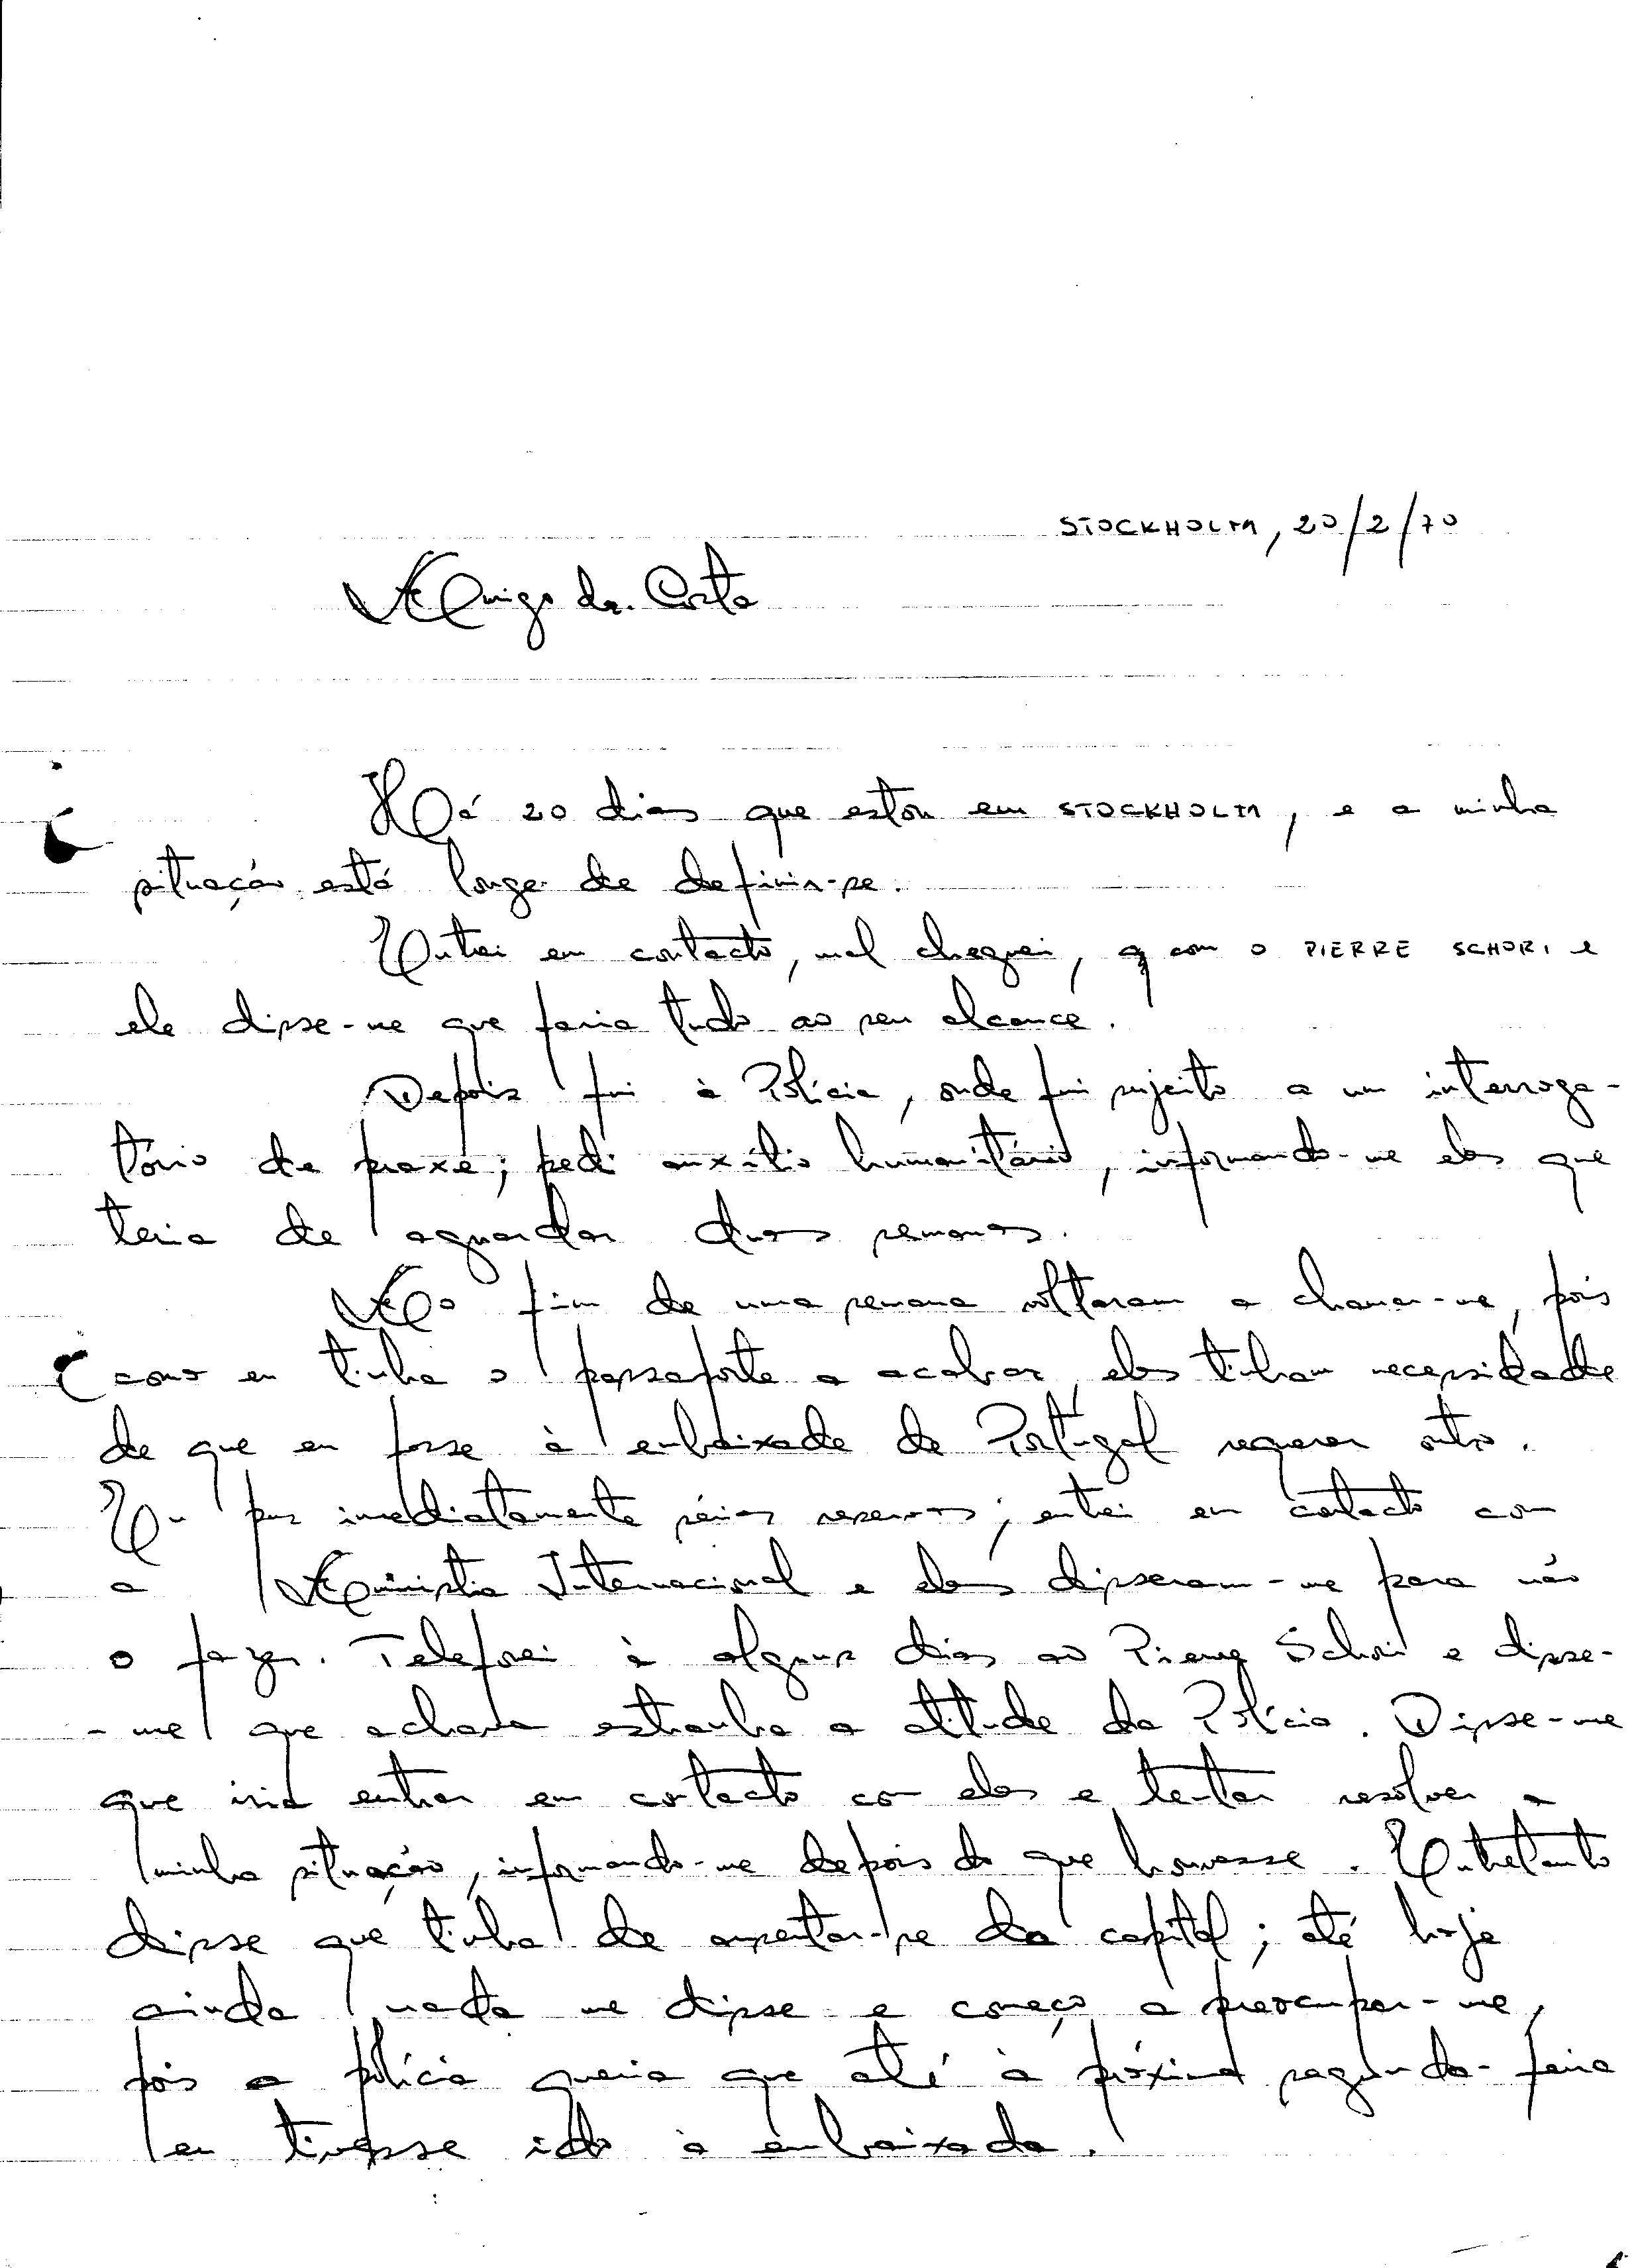 STOCKHOLM, 20/2/70
Amigo dr. Costa
Há 20 dias que estou em STOCKHOLM, e a minha
situação está longe de definir-se.
Entrei em contacto, mal cheguei, com o PIERRE SCHORI e
ele disse-me que faria tudo ao seu alcance.
Depois fui à Polícia, onde fui sujeito a um interroga-
tório de praxe; pedi auxílio humanitário, informando-me eles que
teria de aguardar duas semanas.
Ao fim de uma semana voltaram a chamar-me, pois
como eu tinha o passaporte a acabar, eles tinham necessidade
de que eu fosse à embaixada de Portugal requerer outro.
Eu pus imediatamente sérias reservas; entrei em contacto com
a Amnistia Internacional e eles disseram-me para não
o fazer. Telefonei à alguns dias ao Pierre Schori e disse-
-me que achava estranha a atitude da Polícia. Disse-me
que iria entrar em contacto com eles e tentar resolver a
minha situação, informando-me depois do que houvesse. Entretanto
disse que tinha de ausentar-se da capital; até hoje
ainda nada me disse e começo a preocupar-me,
pois a polícia queria que até à próxima segunda-feira
eu tivesse ido à embaixada.